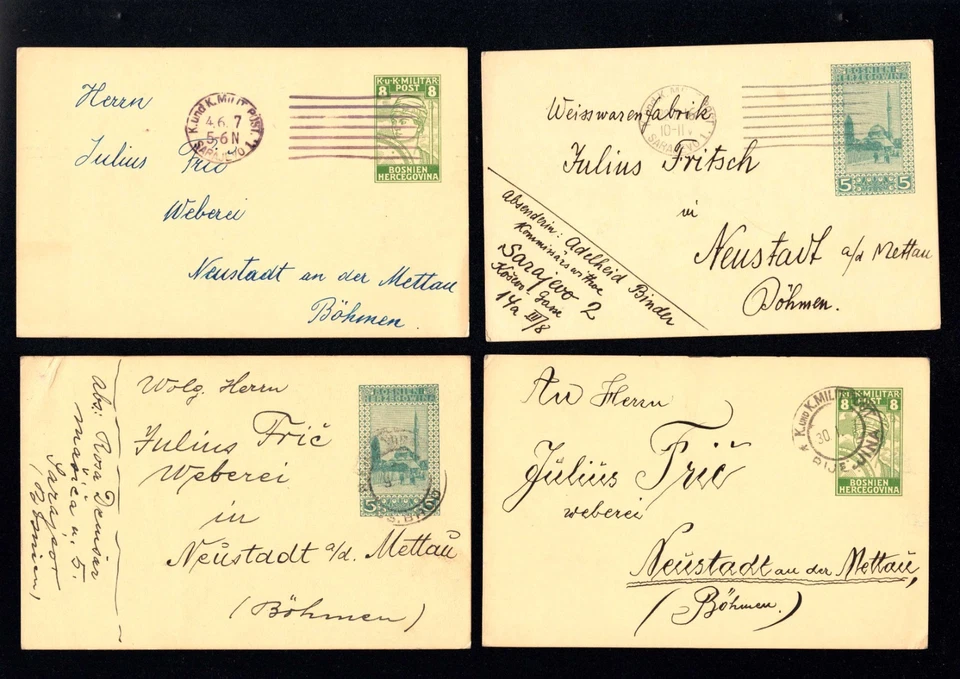 Herrn
Julius Fric
Weberei
Neustadt an der Mettau
Böhmen.
K.u.K. MILITÄR
POST
8 8
BOSNIEN
HERCEGOVINA
K. und K. MILIT. POST.
4.6. 7
5-6 N
SARAJEVO 1.
Weisswarenfabrik
Julius Fritsch
in
Neustadt a/d Mettau
Böhmen.
Absenderin: Adelheid Binder
Sarajevo 2
14a III/8
BOSNIEN
HERZEGOWINA
5 5
10-11V
SARAJEVO 1.
Wolg. Herrn
Julius Frič
Weberei
in
Neustadt a/d. Mettau
(Böhmen)
Abs: Rosa Demsar
5.
Sarajevo
(Bosnien)
BOSNIEN
HERZEGOWINA
5
S. BROD
An Herrn
Julius Frič
weberei
Neustadt an der Mettau,
(Böhmen.)
K.u.K. MILITÄR
POST
8 8
BOSNIEN
HERCEGOVINA
K. UND K. MILI
30.